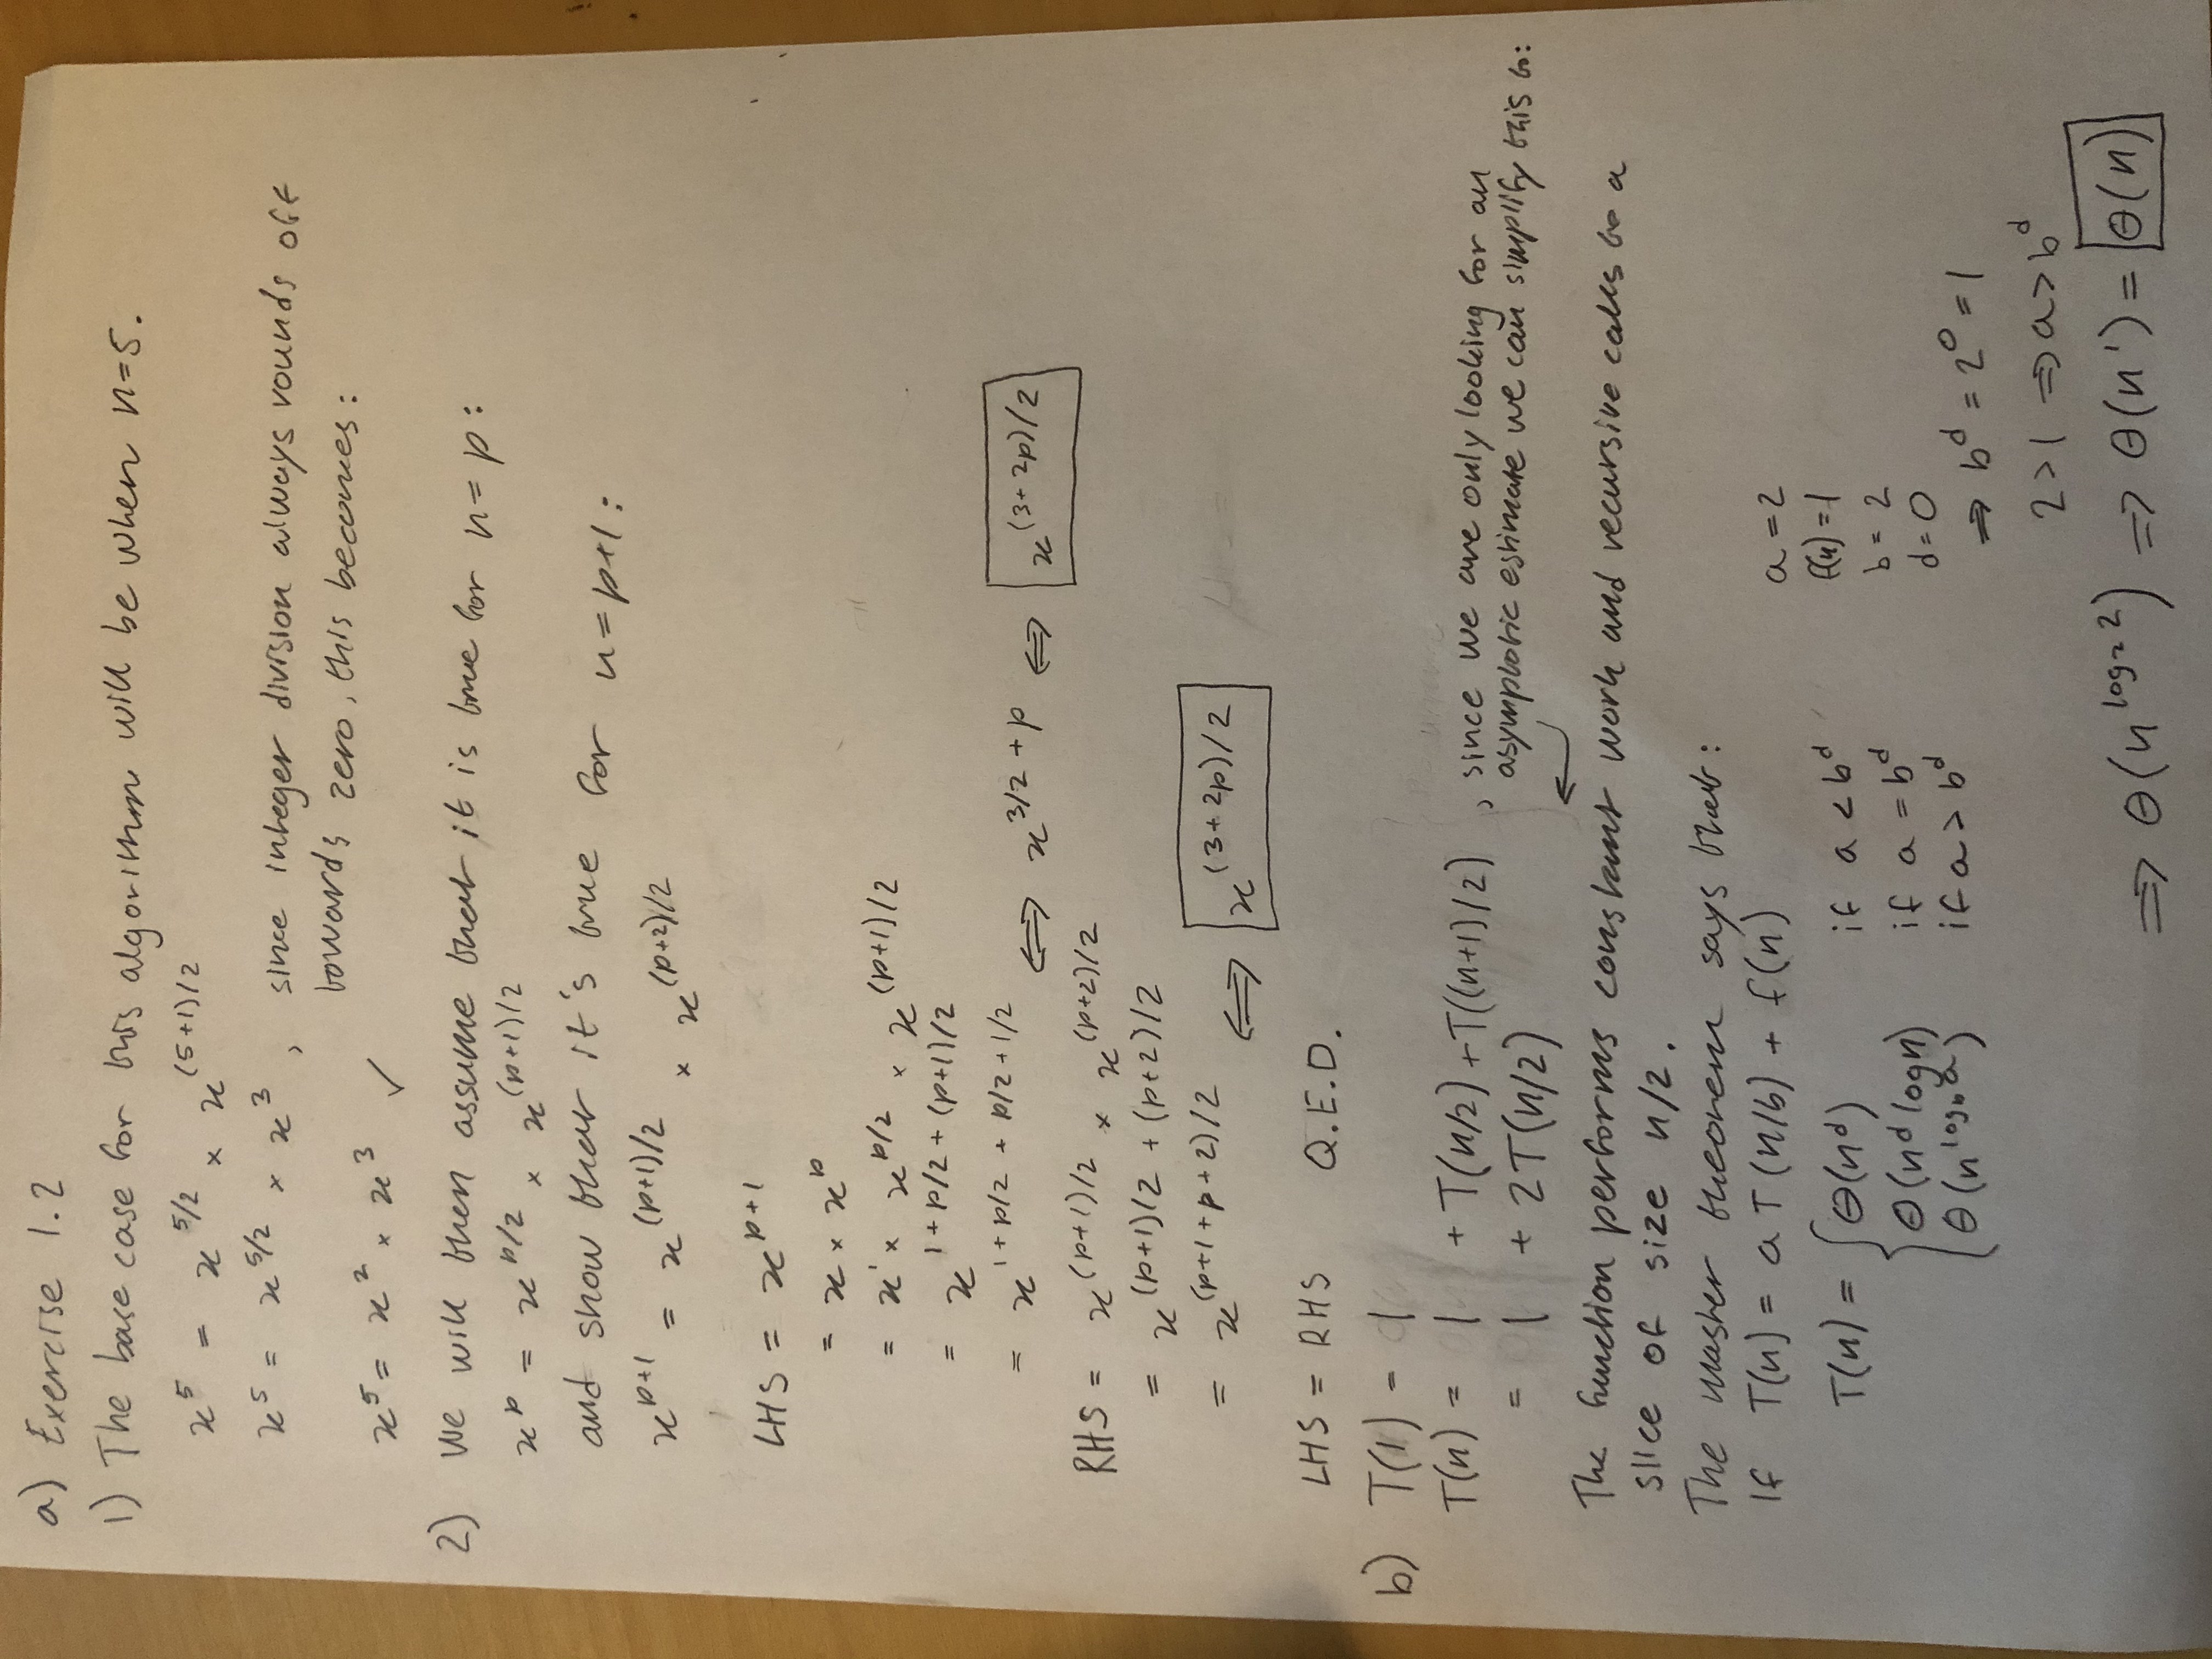 a) Exercise 1.2
1) The base case for this algorithm will be when n=5.
x^5 = x^{5/2} × x^{(5+1)/2}
x^5 = x^{5/2} × x^3 , since integer division always rounds off
towards zero, this becomes:
x^5 = x^2 × x^3 ✓
2) We will then assume that it is true for n = p:
x^p = x^{p/2} × x^{(p+1)/2}
and show that it's true for n = p+1:
x^{p+1} = x^{(p+1)/2} × x^{(p+2)/2}
LHS = x^{p+1}
= x × x^p
= x^1 × x^{p/2} × x^{(p+1)/2}
= x^{1 + p/2 + (p+1)/2}
= x^{1 + p/2 + p/2 + 1/2} ⟺ x^{3/2 + p} ⟺ x^{(3+2p)/2}
RHS = x^{(p+1)/2} × x^{(p+2)/2}
= x^{(p+1)/2 + (p+2)/2}
= x^{(p+1+p+2)/2} ⟺ x^{(3+2p)/2}
LHS = RHS Q.E.D.
b) T(1) = 1
T(n) = 1 + T(n/2) + T((n+1)/2) , since we are only looking for an
asymptotic estimate we can simplify this to:
= 1 + 2T(n/2) ←
The function performs constant work and recursive calls to a
slice of size n/2.
The master theorem says that:
If T(n) = a T(n/b) + f(n)
a = 2
T(n) = { Θ(n^d) if a < b^d
f(n) = 1
Θ(n^d log n) if a = b^d
b = 2
d = 0
Θ(n^{log_b a}) if a > b^d
⇒ b^d = 2^0 = 1
2 > 1 ⇒ a > b^d
⇒ Θ(n^{log_2 2}) ⇒ Θ(n^1) = Θ(n)